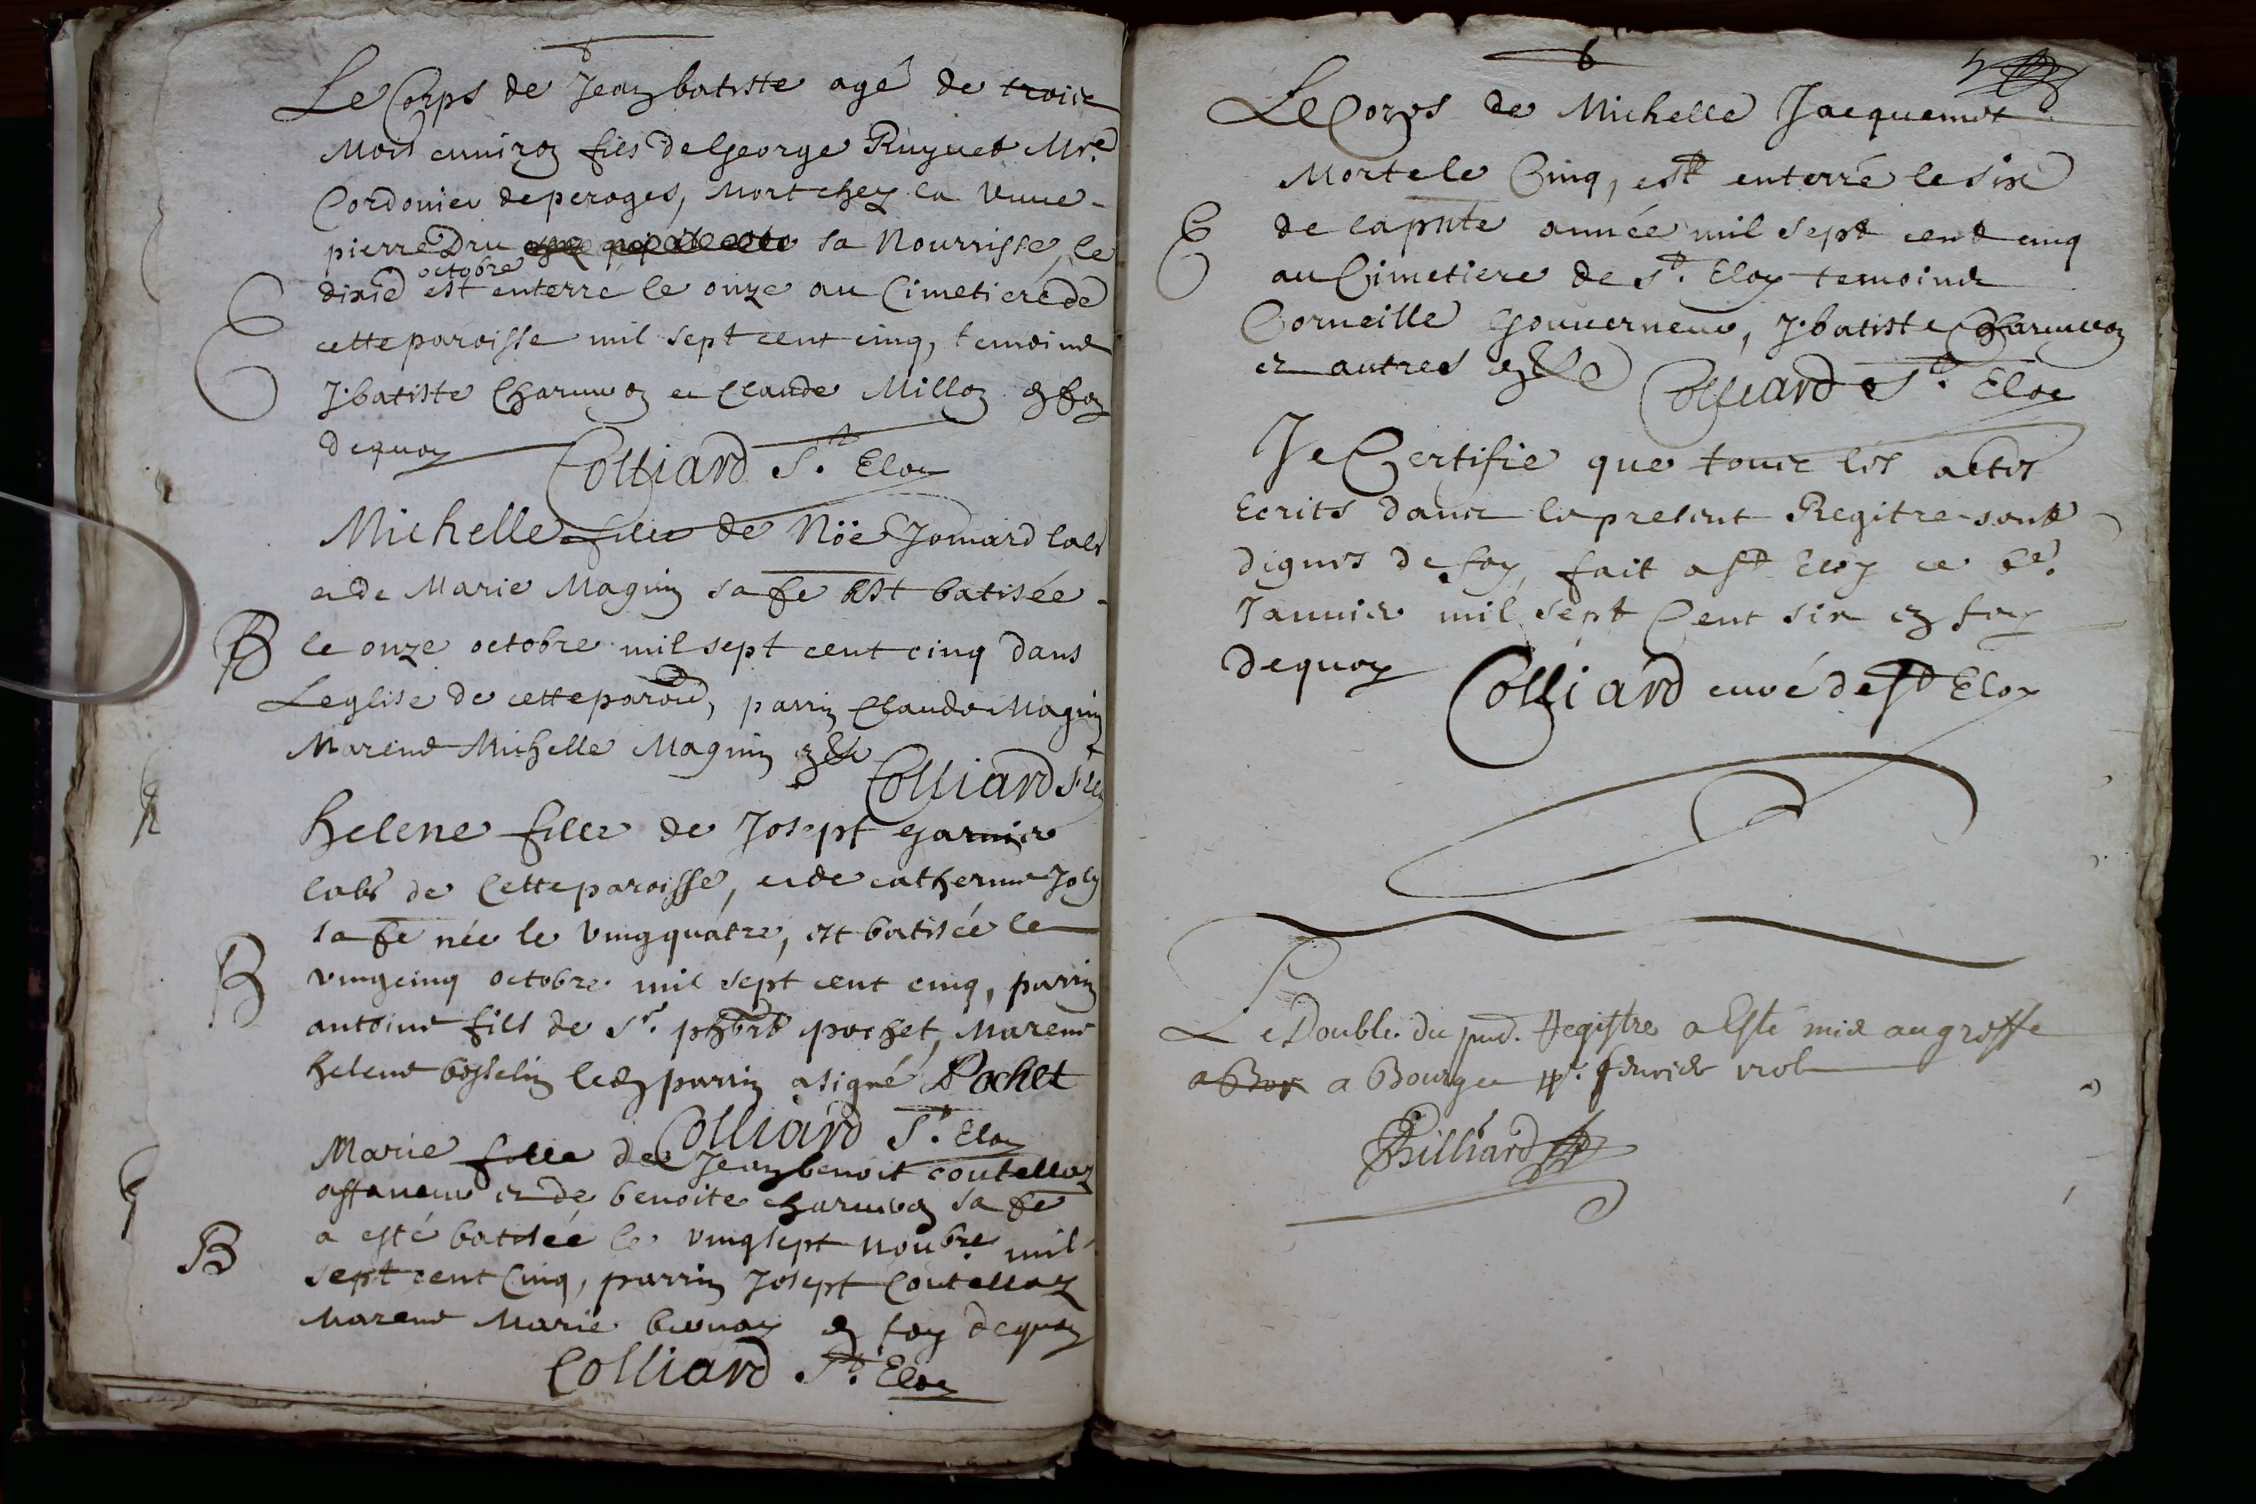 Le Corps de Jean batiste agé de trois
Mois environ fils De George Ruyuet Mre
Cordonier de peroges, Mort chez la veuve
pierre Dru sa Nourrisse, le
octobre
dixie est enterré le onze au Cimetiere de
cette paroisse mil sept cent cinq, temoins
J. batiste Charuuon et Claude Millon en foy
dequoy
Colliard St. Eloy
Michelle fille de Nöe Jomard labr
et de Marie Magnin sa fe est batisée
B le onze octobre mil sept cent cinq dans
Leglise de cette parois, parrin Claude Magnin
Marene Michelle Magnin
Colliard St
helene fille de Josept garnier
labr de Cette paroisse, et de catherine Joly
sa fe née le vingquatre, est batisée le
B vingcinq octobre mil sept cent cinq, parrin
antoine fils de Sr. phbrt pochet, Marene
helene bosselin led parrin a signé Pochet
Colliard St. Eloy
Marie fille de Jean benoit coutelloz
affaneur et de benoite charuuon sa fe
a esté batisée le vingsept noubre mil
B sept cent Cinq, parrin Josept Coutelloz
Marene Marie en foy dequoy
Colliard St. Eloy
Le Corps de Michelle Jacquemet
Morte le Cinq, est enterré le six
de la pnte année mil sept cent cinq
au Cimetiere de St. Eloy temoins
Corneille Gouverneur, J. batiste Charuuon
et autres
Colliard St. Eloy
Je Certifie que tous les actes
Ecrits dans le present Regitre sont
dignes de foy, fait a St Eloy ce
Januier mil sept Cent six en foy
dequoy
Colliard curé de St Eloy
Le Double du pnt. Registre a Esté mis au greffe
a Bourg ce feurier
Billiard